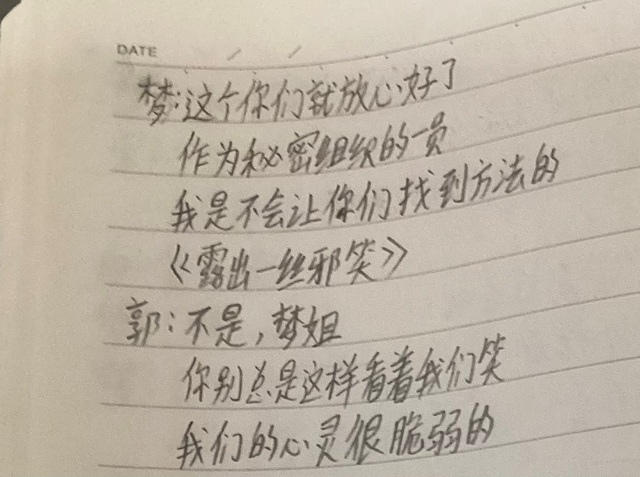 DATE / /
梦:这个你们就放心好了
作为秘密组织的一员
我是不会让你们找到方法的
《露出一丝邪笑》
郭:不是,梦姐
你别总是这样看着我们笑
我们的心灵很脆弱的